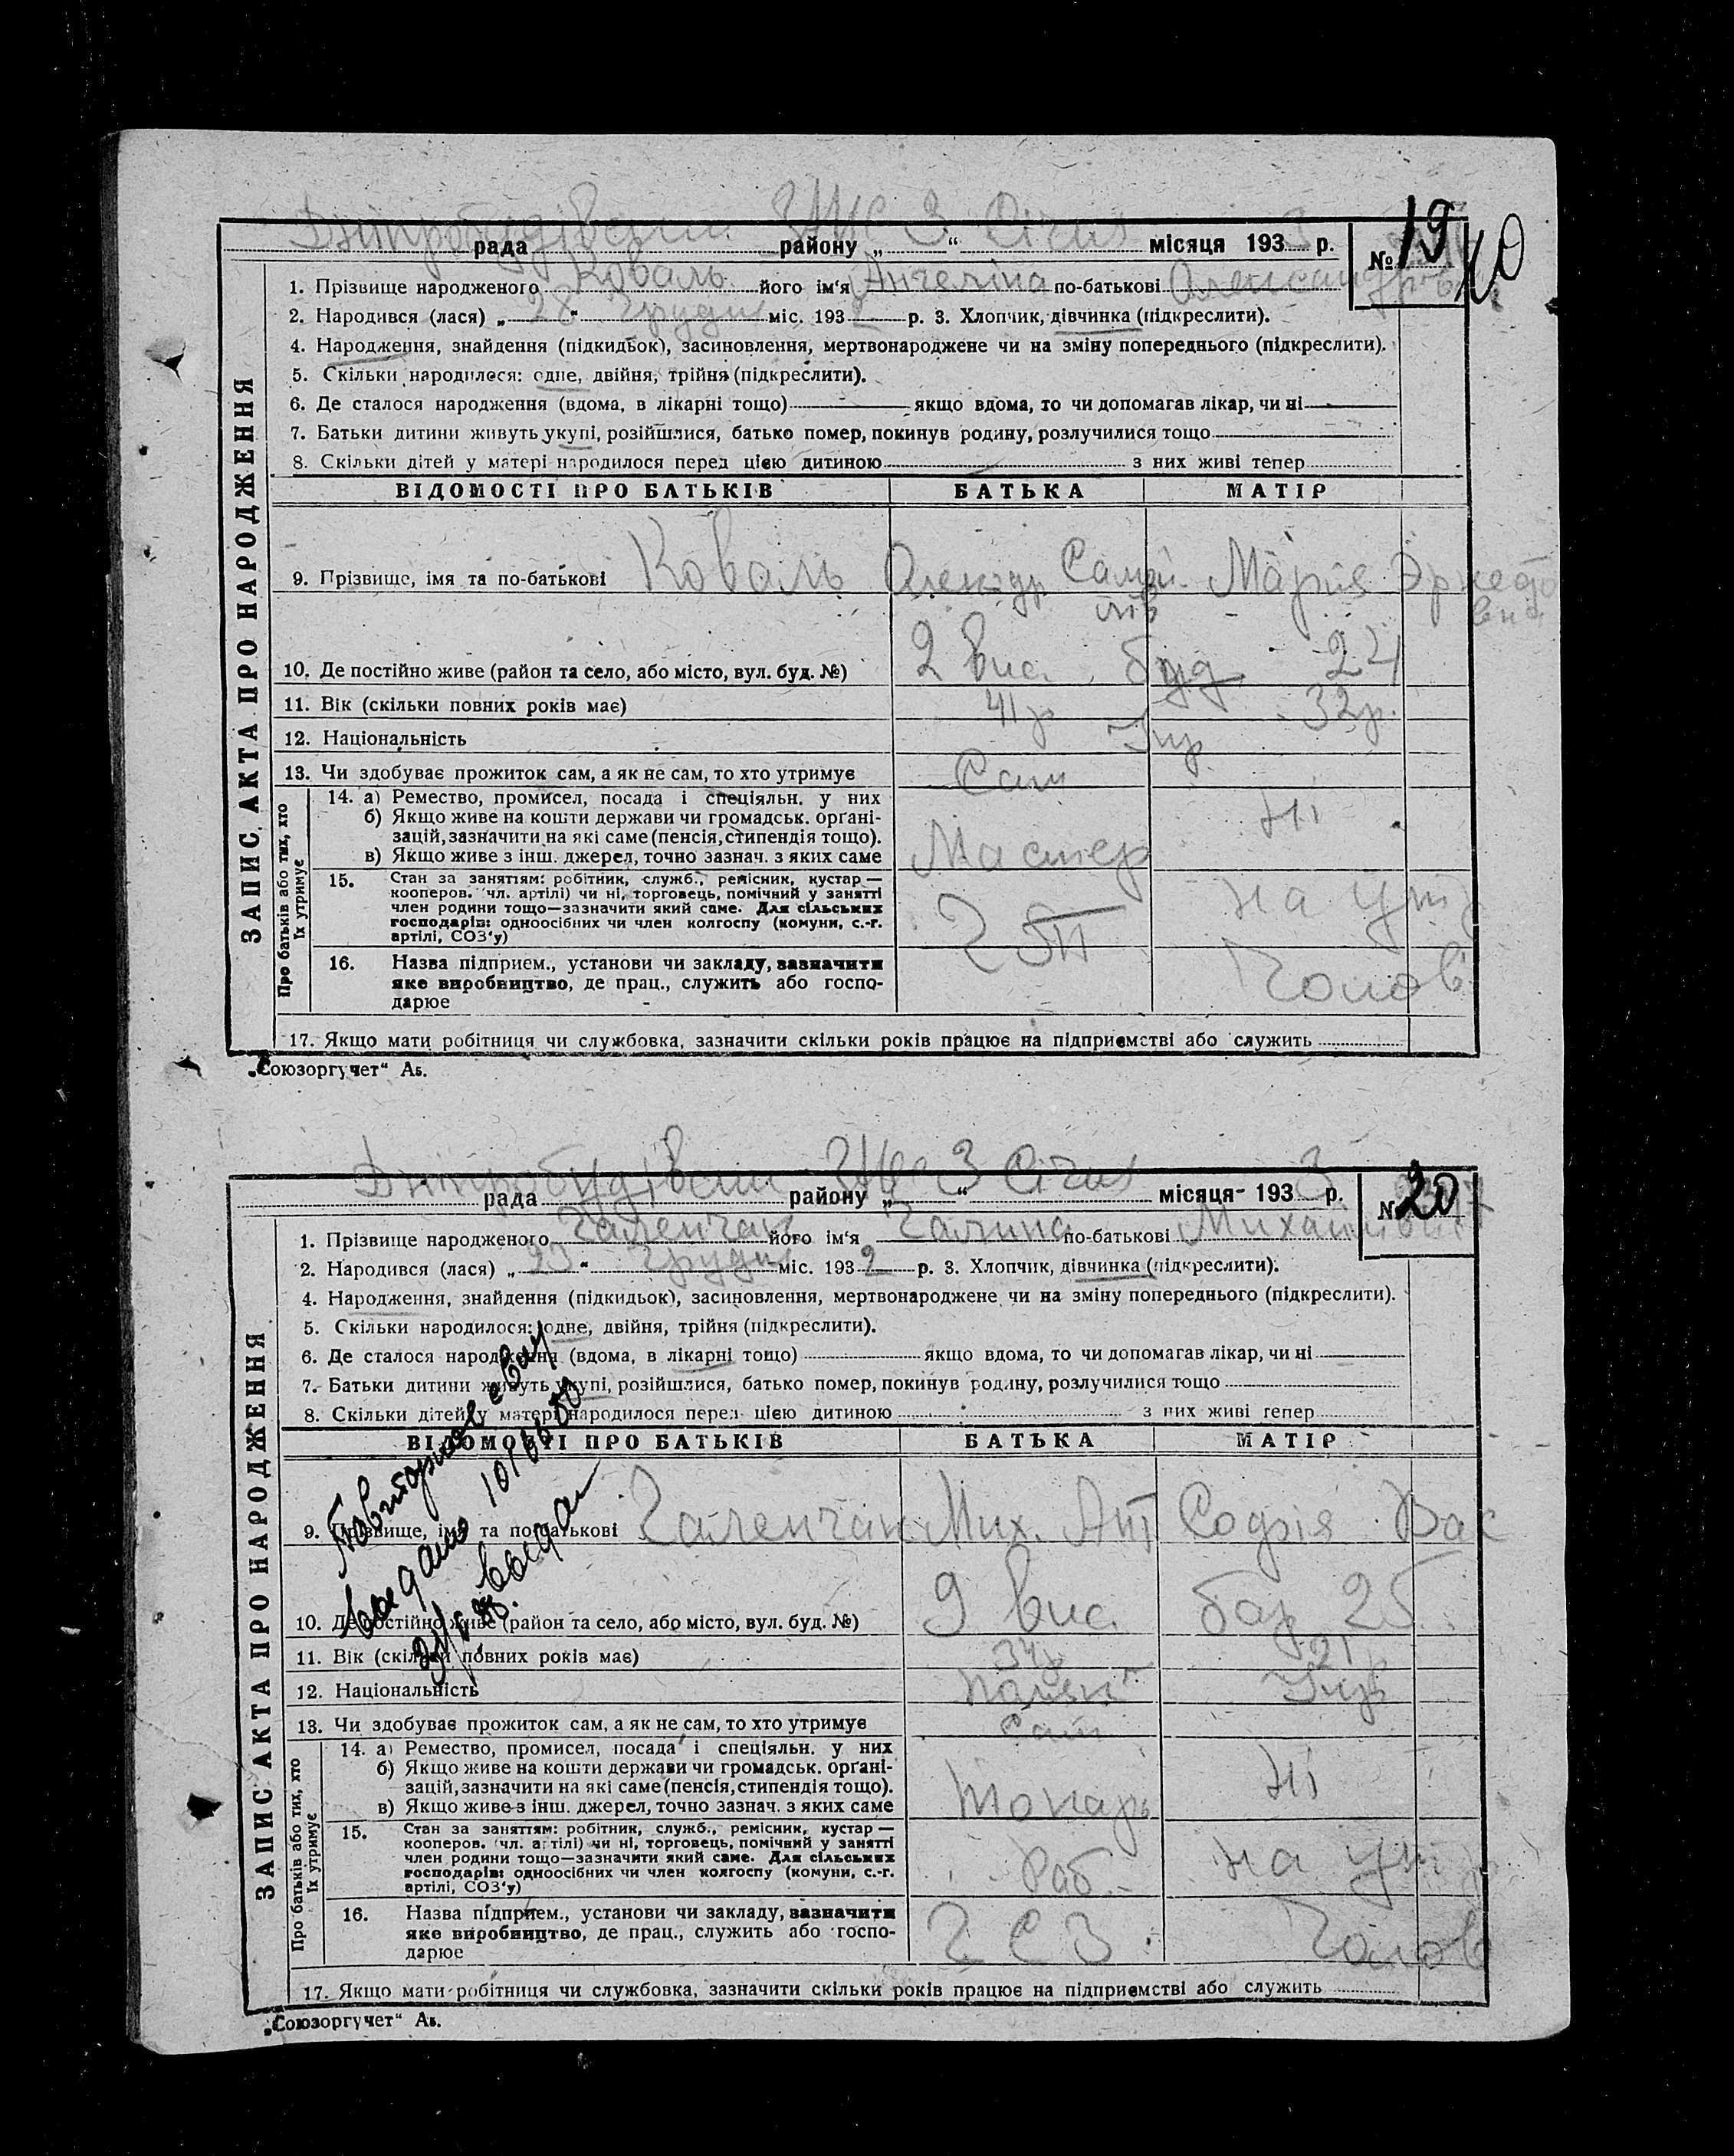 Дніпробудівська ЗАГС 3 Січня 3
рада района „ “ місяця 193 р. № 19
40
1. Прізвище народженого Коваль його ім'я Ангеліна по-батькові Олександрів.
2. Народився (лася) „28“ Грудня міс. 1932 р. 3. Хлопчик, дівчинка (підкреслити).
4. Народження, знайдення (підкидьок), засиновлення, мертвонароджене чи на зміну попереднього (підкреслити).
5. Скільки народилося: одне, двійня, трійня (підкреслити).
6. Де сталося народження (вдома, в лікарні тощо) якщо вдома, то чи допомагав лікар, чи ні
7. Батьки дитини живуть укупі, розійшлися, батько помер, покинув родину, розлучилися тощо
8. Скільки дітей у матері народилося перед цією дитиною з них живі тепер
ВІДОМОСТІ ПРО БАТЬКІВ БАТЬКА МАТІР
9. Прізвище, імя та по-батькові Коваль Олександр Самій- Марія Эрнесто
лів вна
10. Де постійно живе (район та село, або місто, вул. буд. №) 2 вис. буд. 24
11. Вік (скільки повних років має) 41 р 32 р.
12. Національність Укр
13. Чи здобуває прожиток сам, а як не сам, то хто утримує Сам
14. а) Ремество, промисел, посада і спеціяльн. у них
б) Якщо живе на кошти держави чи громадськ. організацій, зазначити на які саме (пенсія, стипендія тощо).
в) Якщо живе з інш. джерел, точно зазнач. з яких саме Мастер Ні
15. Стан за заняттям: робітник, служб., ремісник, кустар —
кооперов. (чл. артілі) чи ні, торговець, помічний у занятті
член родини тощо—зазначити який саме. Для сільських
господарів: одноосібних чи член колгоспу (комуни, с.-г.
артілі, СОЗ'у) на ут
16. Назва підприєм., установи чи закладу, зазначити
яке виробництво, де прац., служить або госпо-
дарює Чолов
17. Якщо мати робітниця чи службовка, зазначити скільки років працює на підприємстві або служить
Про батьків або тих, хто їх утримує
ЗАПИС АКТА ПРО НАРОДЖЕННЯ
„Союзоргучет“ Аб.
Дніпробудівська ЗАГС 3 Січня 3
рада району „ “ місяця 193 р. № 20
1. Прізвище народженого Галенчак його ім'я Галина по-батькові Михайлівна
2. Народився (лася) „23“ Грудня міс. 1932 р. 3. Хлопчик, дівчинка (підкреслити).
4. Народження, знайдення (підкидьок), засиновлення, мертвонароджене чи на зміну попереднього (підкреслити).
5. Скільки народилося: одне, двійня, трійня (підкреслити).
6. Де сталося народження (вдома, в лікарні тощо) якщо вдома, то чи допомагав лікар, чи ні
7. Батьки дитини живуть укупі, розійшлися, батько помер, покинув родину, розлучилися тощо
8. Скільки дітей у матері народилося перед цією дитиною з них живі тепер
ВІДОМОСТІ ПРО БАТЬКІВ БАТЬКА МАТІР
9. Прізвище, імя та по-батькові Галенчак Мих. Ант Софія Вас
10. Де постійно живе (район та село, або місто, вул. буд. №) 9 вис. бар 25
11. Вік (скільки повних років має) 34 р 21 р
12. Національність Поляк Укр
13. Чи здобуває прожиток сам, а як не сам, то хто утримує Сам
14. а) Ремество, промисел, посада і спеціяльн. у них
б) Якщо живе на кошти держави чи громадськ. органі-
зацій, зазначити на які саме (пенсія, стипендія тощо).
в) Якщо живе з інш. джерел, точно зазнач. з яких саме Токарь Ні
15. Стан за заняттям: робітник, служб., ремісник, кустар —
кооперов. (чл. артілі) чи ні, торговець, помічний у занятті
член родини тощо—зазначити який саме. Для сільських
господарів: одноосібних чи член колгоспу (комуни, с.-г.
артілі, СОЗ'у) Роб. на ут
16. Назва підприєм., установи чи закладу, зазначити
яке виробництво, де прац., служить або госпо-
дарює Чолов
17. Якщо мати робітниця чи службовка, зазначити скільки років працює на підприємстві або служить
Про батьків або тих, хто їх утримує
ЗАПИС АКТА ПРО НАРОДЖЕННЯ
„Союзоргучет“ Аб.